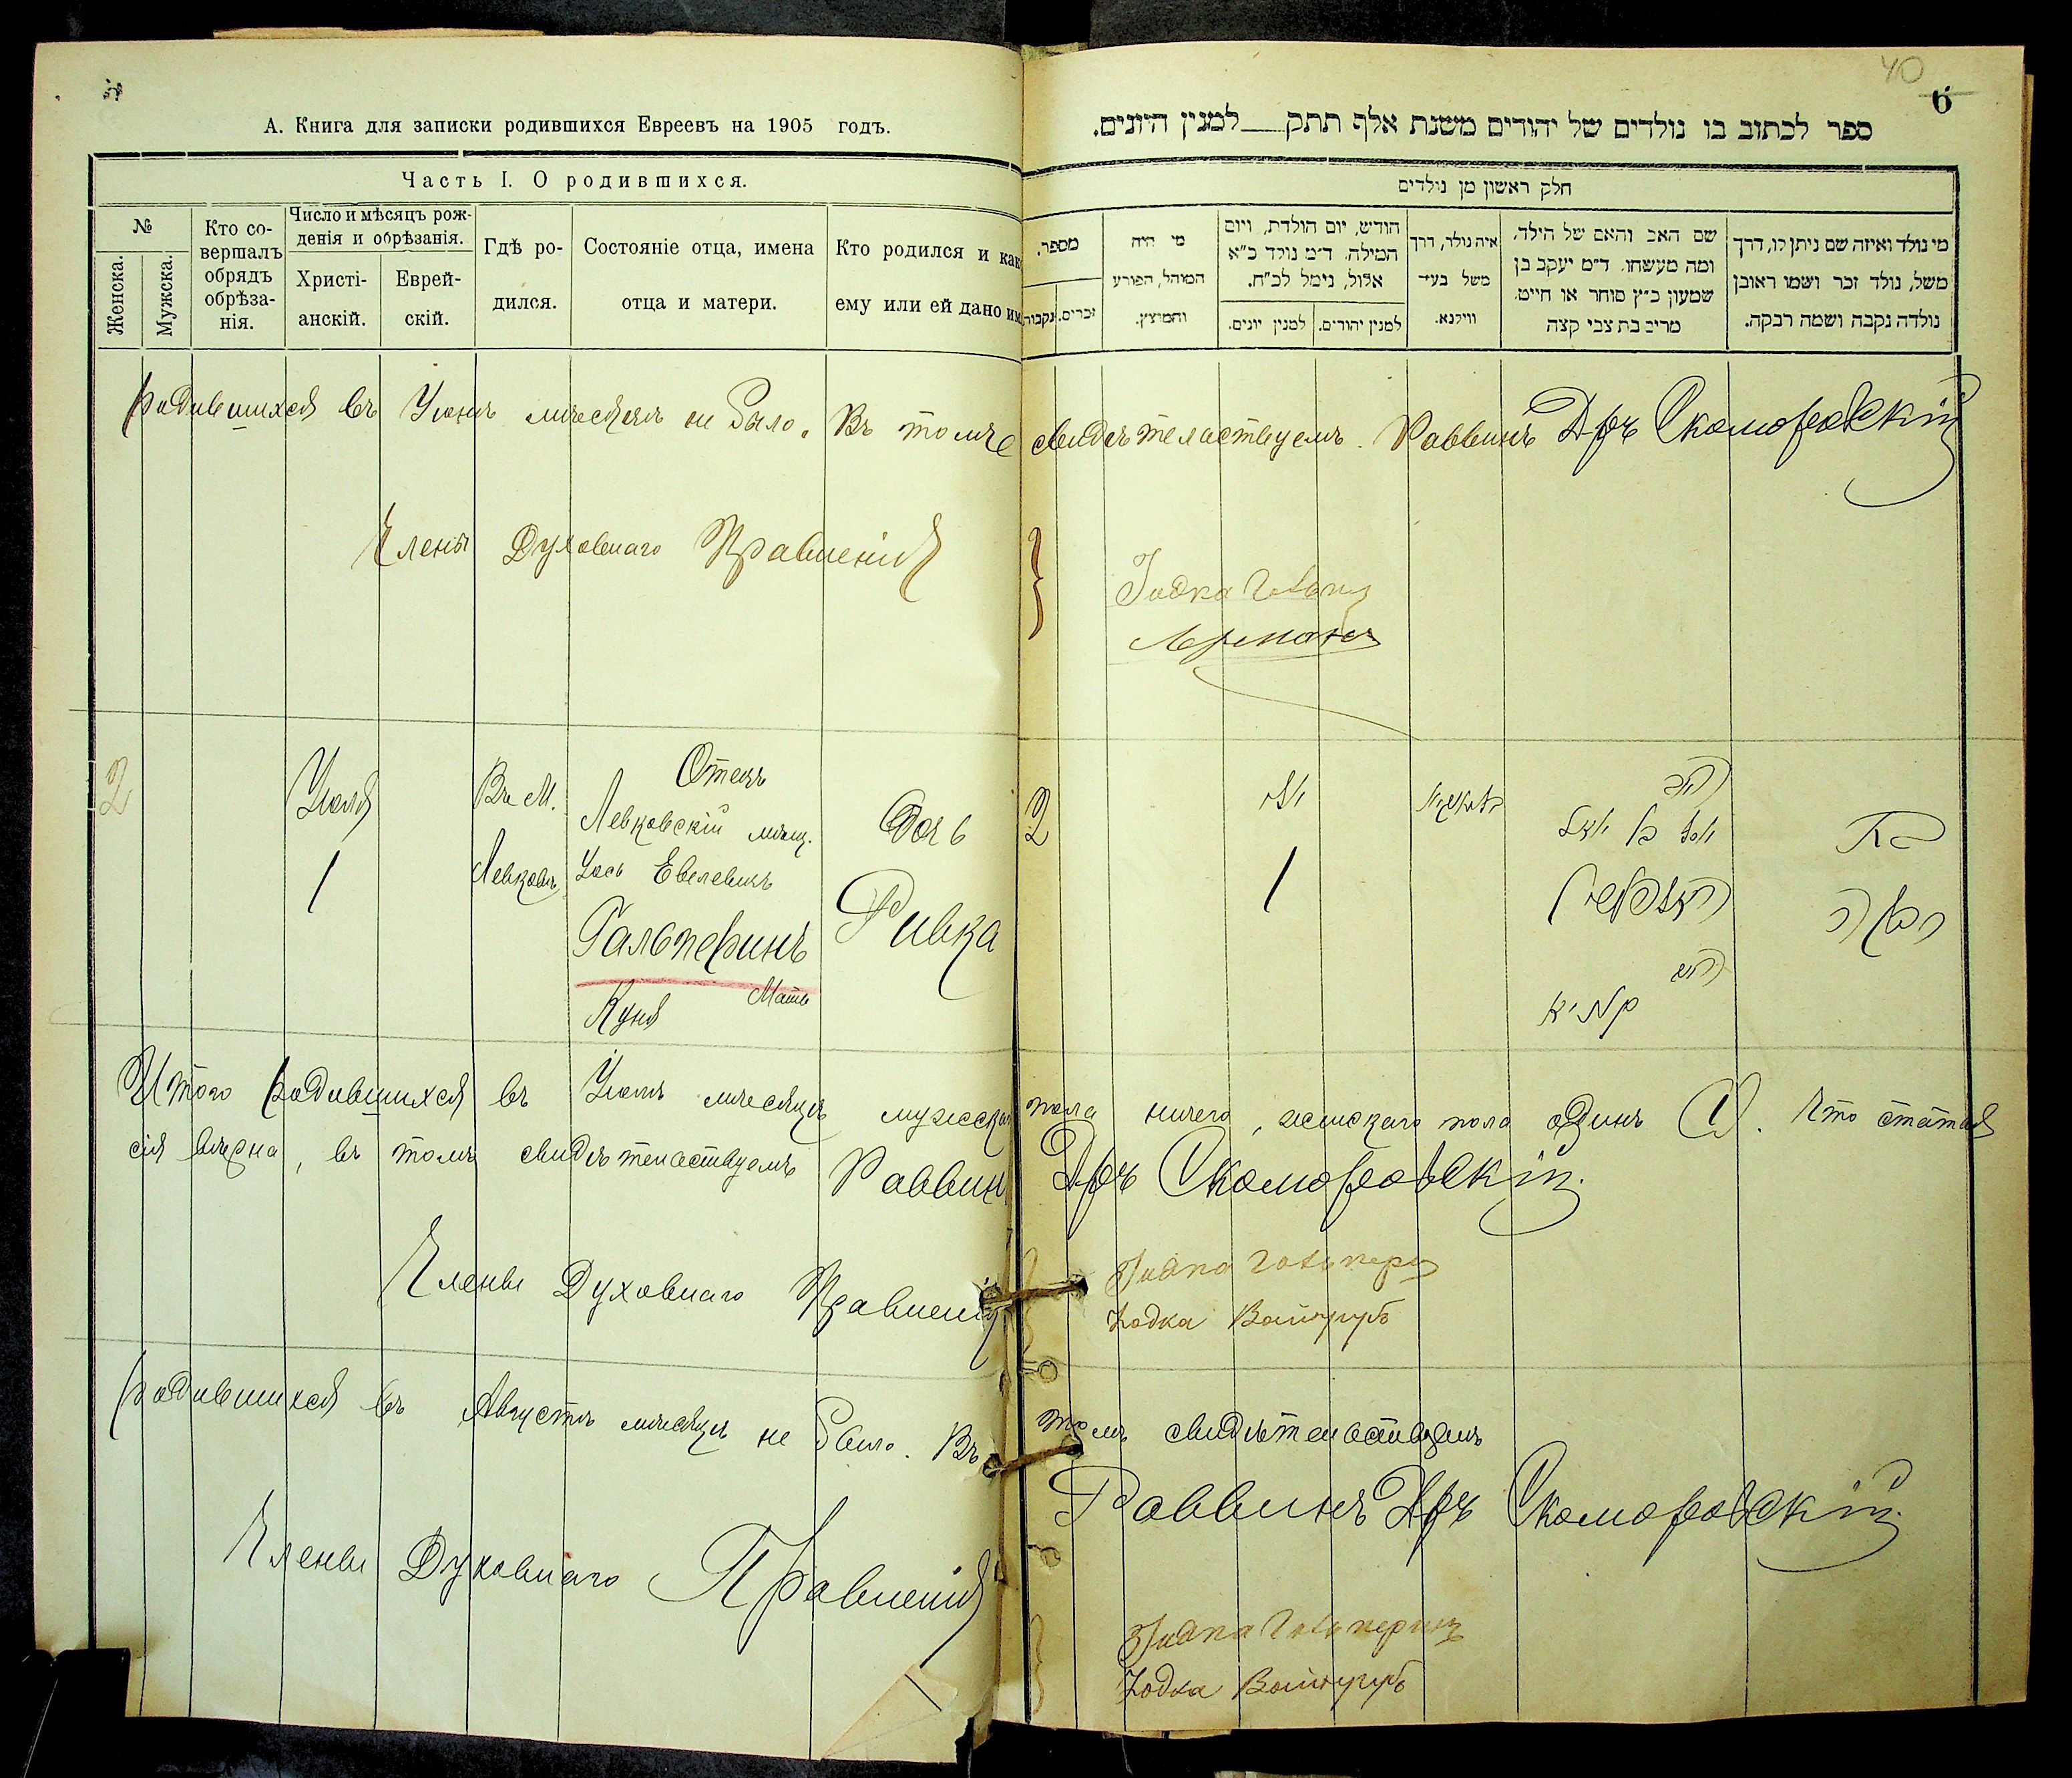 А. Книга для записки родившихся Евреевъ на 1905 годъ.
Часть I. О родившихся.
№
Женска.
Мужска.
Кто со-
вершалъ
обрядъ
обрѣза-
нія.
Число и мѣсяцъ рож-
денія и обрѣзанія.
Христі-
анскій.
Еврей-
скій.
Гдѣ ро-
дился.
Состояніе отца, имена
отца и матери.
Кто родился и как
ему или ей дано им
40
6
ספר לכתוב בו נולדים של יהודים משנת אלף תתק__למנין היונים.
חלק ראשון מן נולדים
מספר.
זכרים.
נקבות
מי היה
המוהל, הפורע
והמוצץ.
חודש, יום הולדת, ויום
המילה. ד״מ נולד כ״א
אלול, נימל לכ״ח.
למנין יונים.
למנין יהודים.
איה נולד, דרך
משל בעיר
ווילנא.
שם האב והאם של הילד,
ומה מעשהו. ד״מ יעקב בן
שמעון כ״ץ סוחר או חייט,
מרים בת צבי קצה
מי נולד ואיזה שם ניתן לו, דרך
משל, נולד זכר ושמו ראובן
נולדה נקבה ושמה רבקה.
Родившихся въ Іюнѣ мѣсяцѣ не было. Въ томъ свидѣтельствуемъ. Раввинъ Дръ Скоморовскій
Члены Духовнаго Правленія
2
Іюля
1
Въ М.
Левковѣ
Отецъ
Левковскій мѣщ.
Іось Евелевичъ
Гальперинъ
Мать
Куня
Дочь
Ривка
2
1
רבקה
Итого родившихся въ Іюлѣ мѣсяцѣ мужскаго пола ничего, женскаго пола одинъ (1). Что статья
сія вѣрна, въ томъ свидѣтельствуемъ Раввинъ Дръ Скоморовскій
Члены Духовнаго Правленія
Родившихся въ Августѣ мѣсяцѣ не было. Въ томъ свидѣтельствуемъ
Раввинъ Дръ Скоморовскій
Члены Духовнаго Правленія